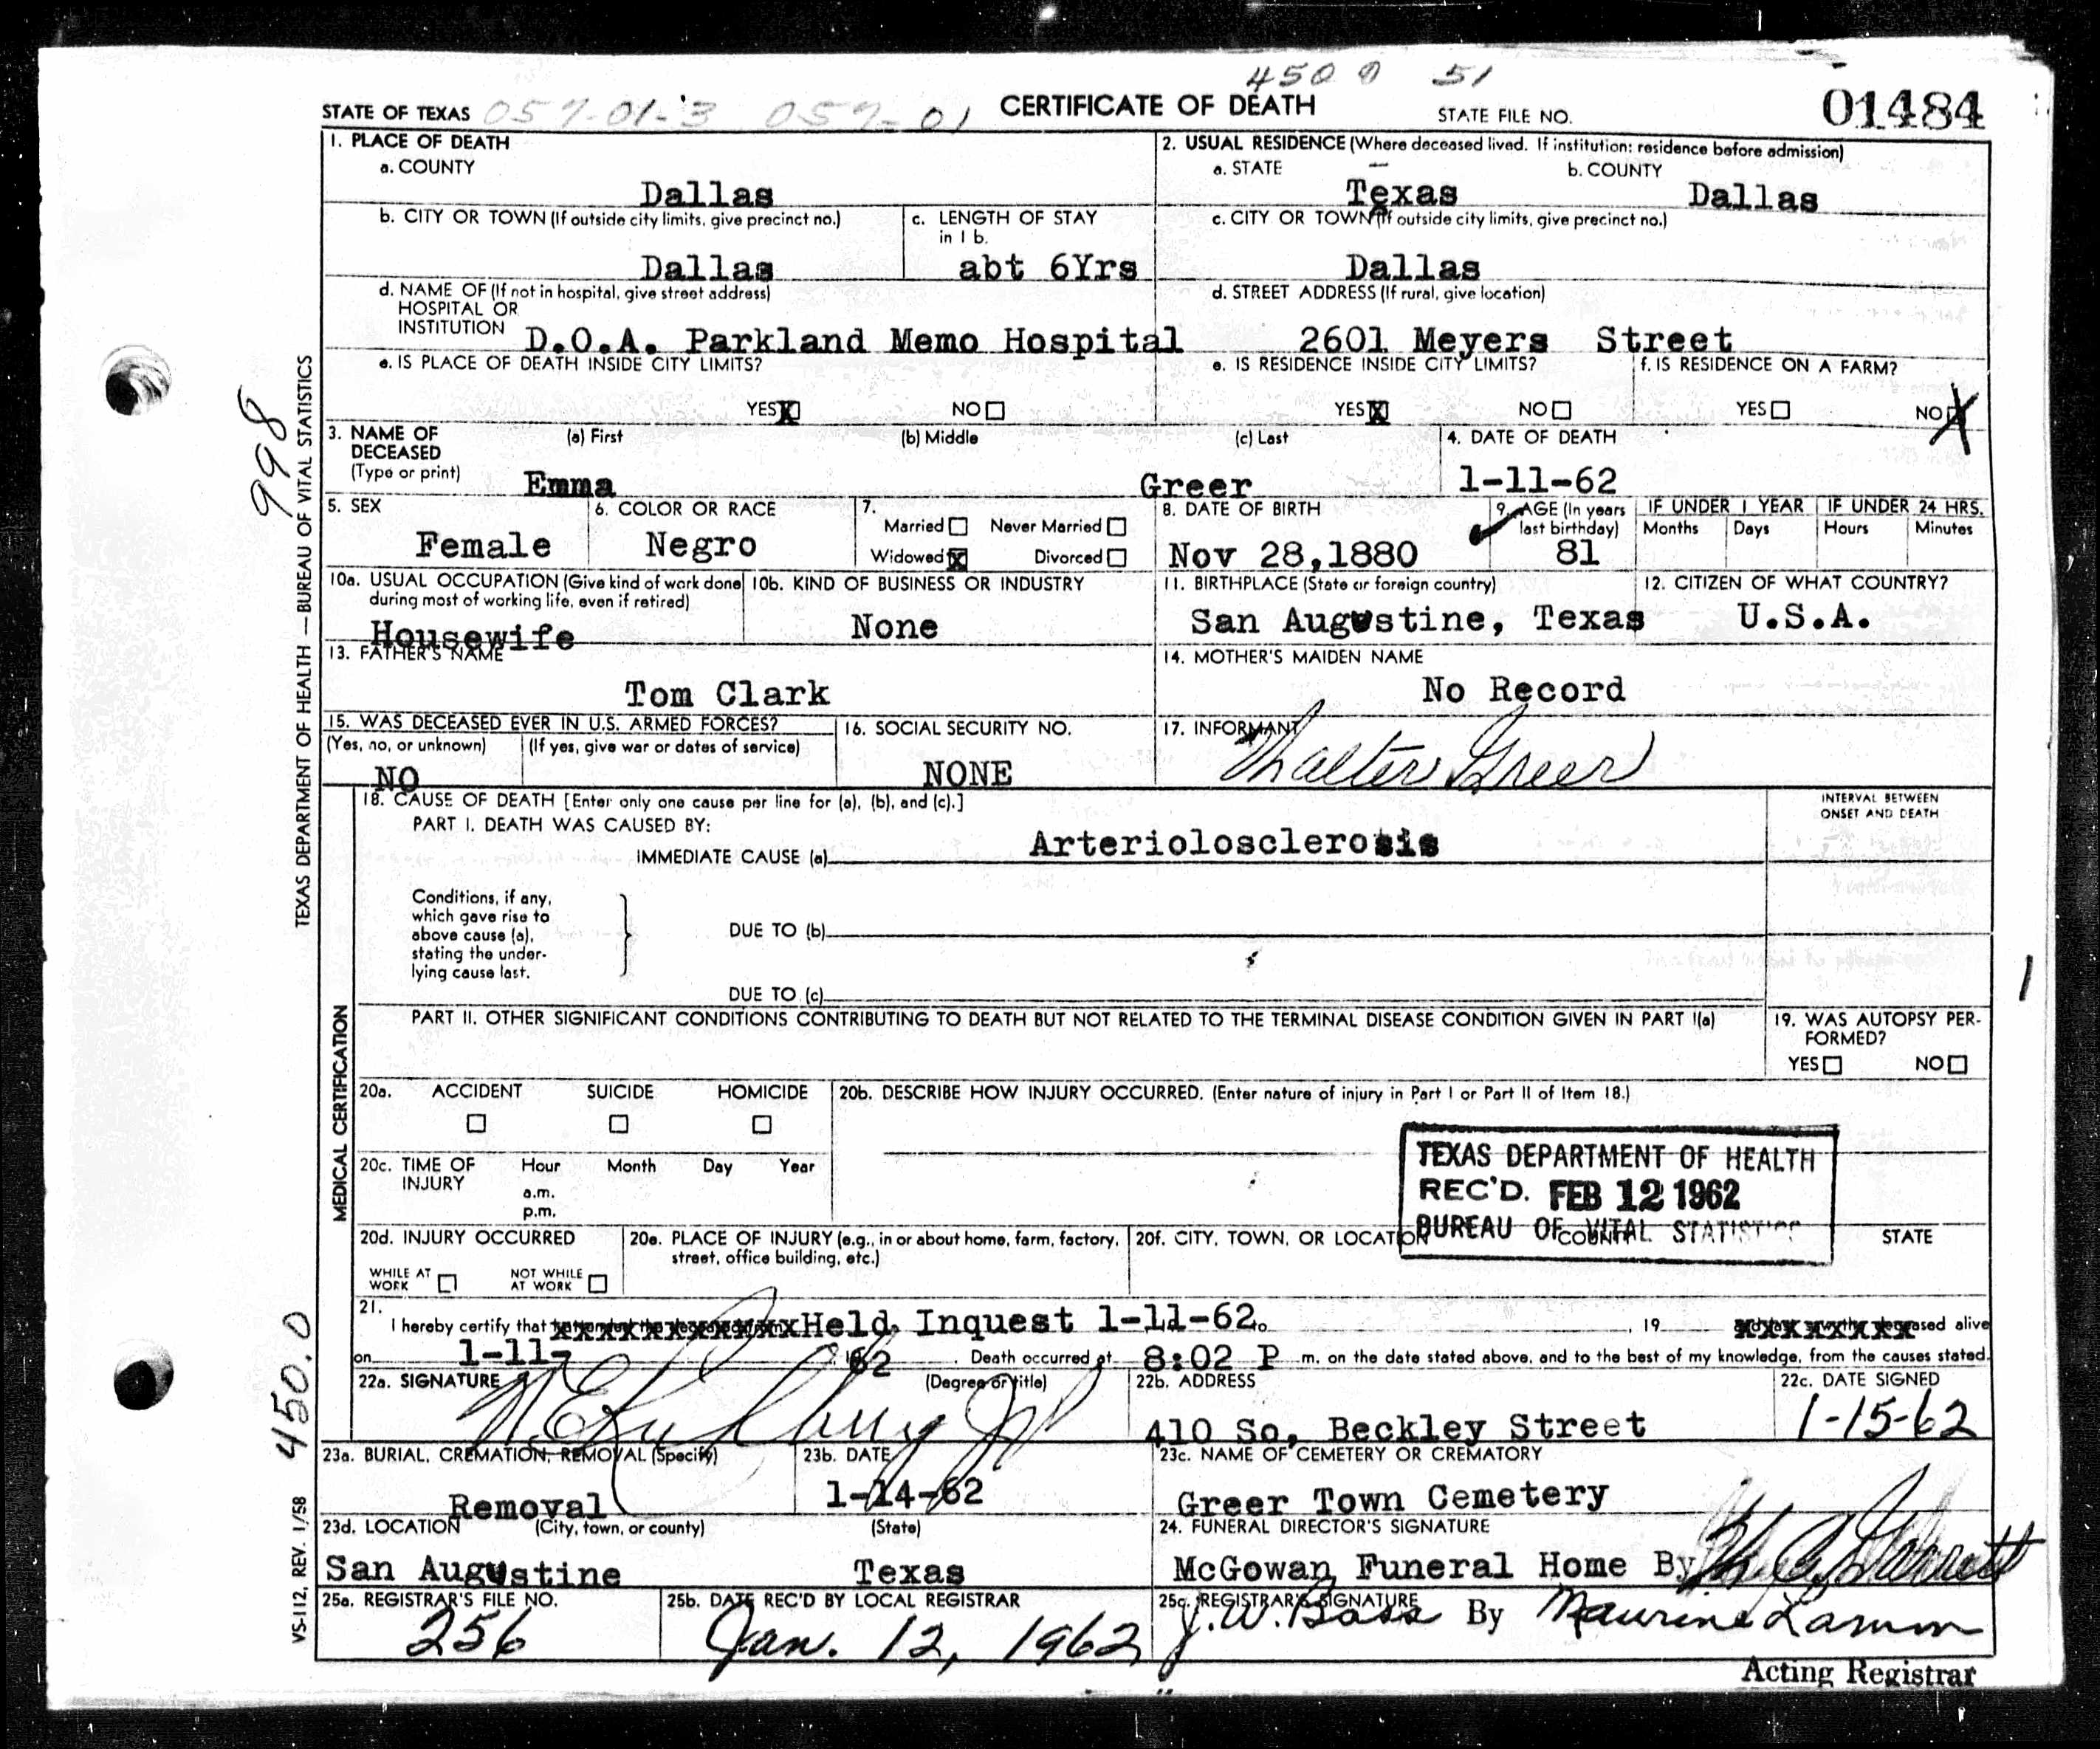 4500 51
STATE OF TEXAS 057-01-3 057-01 CERTIFICATE OF DEATH STATE FILE NO. 01484
1. PLACE OF DEATH
a. COUNTY
Dallas
b. CITY OR TOWN (If outside city limits, give precinct no.)
Dallas
c. LENGTH OF STAY
in 1 b.
abt 6Yrs
d. NAME OF (If not in hospital, give street address)
HOSPITAL OR
INSTITUTION D.O.A. Parkland Memo Hospital
e. IS PLACE OF DEATH INSIDE CITY LIMITS?
YES X NO
2. USUAL RESIDENCE (Where deceased lived. If institution: residence before admission)
a. STATE b. COUNTY
Texas Dallas
c. CITY OR TOWN (If outside city limits, give precinct no.)
Dallas
d. STREET ADDRESS (If rural, give location)
2601 Meyers Street
e. IS RESIDENCE INSIDE CITY LIMITS?
YES X NO
f. IS RESIDENCE ON A FARM?
YES NO X
3. NAME OF (a) First (b) Middle (c) Last
DECEASED
(Type or print) Emma Greer
4. DATE OF DEATH
1-11-62
5. SEX
Female
6. COLOR OR RACE
Negro
7.
Married Never Married
Widowed X Divorced
8. DATE OF BIRTH
Nov 28,1880
9. AGE (In years
last birthday)
81
IF UNDER 1 YEAR IF UNDER 24 HRS.
Months Days Hours Minutes
10a. USUAL OCCUPATION (Give kind of work done
during most of working life, even if retired)
Housewife
10b. KIND OF BUSINESS OR INDUSTRY
None
11. BIRTHPLACE (State or foreign country)
San Augustine, Texas
12. CITIZEN OF WHAT COUNTRY?
U.S.A.
13. FATHER'S NAME
Tom Clark
14. MOTHER'S MAIDEN NAME
No Record
15. WAS DECEASED EVER IN U.S. ARMED FORCES?
(Yes, no, or unknown) (If yes, give war or dates of service)
NO
16. SOCIAL SECURITY NO.
NONE
17. INFORMANT
Walter Greer
18. CAUSE OF DEATH [Enter only one cause per line for (a), (b), and (c).]
PART I. DEATH WAS CAUSED BY:
IMMEDIATE CAUSE (a) Arteriolosclerosis
INTERVAL BETWEEN
ONSET AND DEATH
Conditions, if any,
which gave rise to
above cause (a),
stating the under-
lying cause last.
DUE TO (b)
DUE TO (c)
PART II. OTHER SIGNIFICANT CONDITIONS CONTRIBUTING TO DEATH BUT NOT RELATED TO THE TERMINAL DISEASE CONDITION GIVEN IN PART I(a)
19. WAS AUTOPSY PER-
FORMED?
YES NO
20a. ACCIDENT SUICIDE HOMICIDE
20b. DESCRIBE HOW INJURY OCCURRED. (Enter nature of injury in Part I or Part II of Item 18.)
20c. TIME OF Hour Month Day Year
INJURY
a.m.
p.m.
TEXAS DEPARTMENT OF HEALTH
REC'D. FEB 12 1962
BUREAU OF VITAL STATISTICS
20d. INJURY OCCURRED
WHILE AT
WORK
NOT WHILE
AT WORK
20e. PLACE OF INJURY (e.g., in or about home, farm, factory,
street, office building, etc.)
20f. CITY, TOWN, OR LOCATION COUNTY STATE
21.
I hereby certify that Held Inquest 1-11-62 , 19 deceased alive
on 1-11- 62. Death occurred at 8:02 P m. on the date stated above, and to the best of my knowledge, from the causes stated.
22a. SIGNATURE (Degree or title)
22b. ADDRESS
410 So. Beckley Street
22c. DATE SIGNED
1-15-62
23a. BURIAL, CREMATION, REMOVAL (Specify)
Removal
23b. DATE
1-14-62
23c. NAME OF CEMETERY OR CREMATORY
Greer Town Cemetery
23d. LOCATION (City, town, or county) (State)
San Augustine Texas
24. FUNERAL DIRECTOR'S SIGNATURE
McGowan Funeral Home By
25a. REGISTRAR'S FILE NO.
256
25b. DATE REC'D BY LOCAL REGISTRAR
Jan. 12, 1962
25c. REGISTRAR'S SIGNATURE
J.W. Bass By Maurine Lamm
Acting Registrar
998
TEXAS DEPARTMENT OF HEALTH — BUREAU OF VITAL STATISTICS
MEDICAL CERTIFICATION
450.0
VS-112, REV. 1/58
1